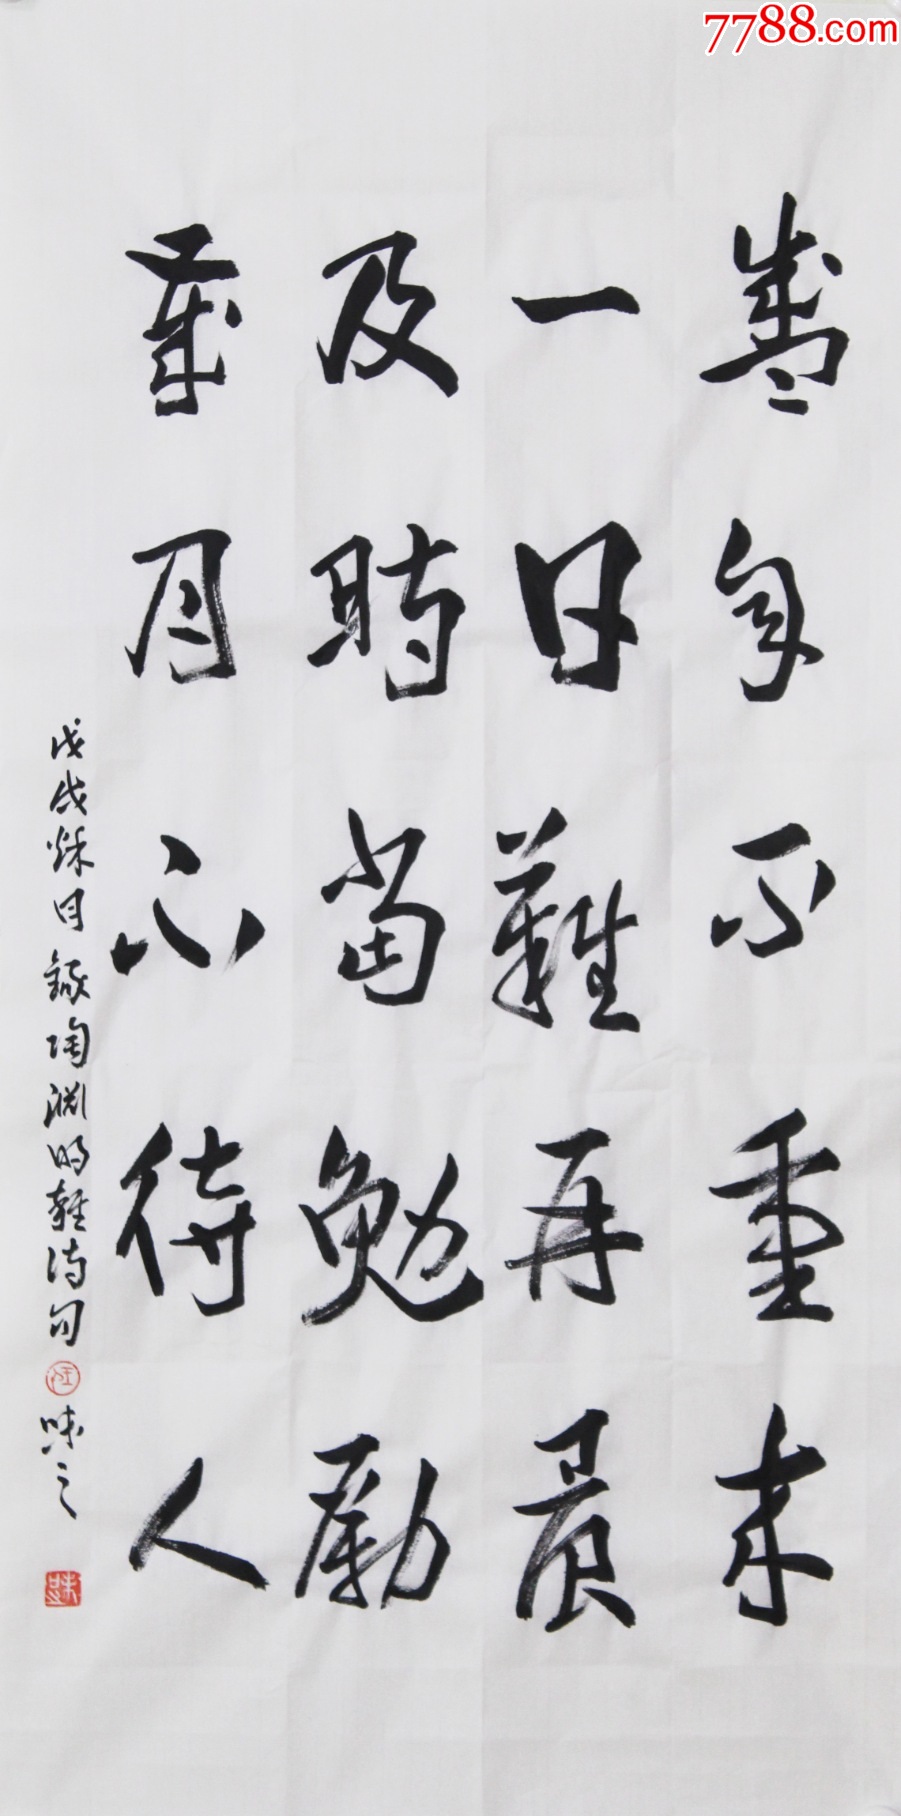 7788.com
盛年不重來
一日難再晨
及時當勉勵
歲月不待人
戊戌秋月錄陶淵明雜詩句
味之